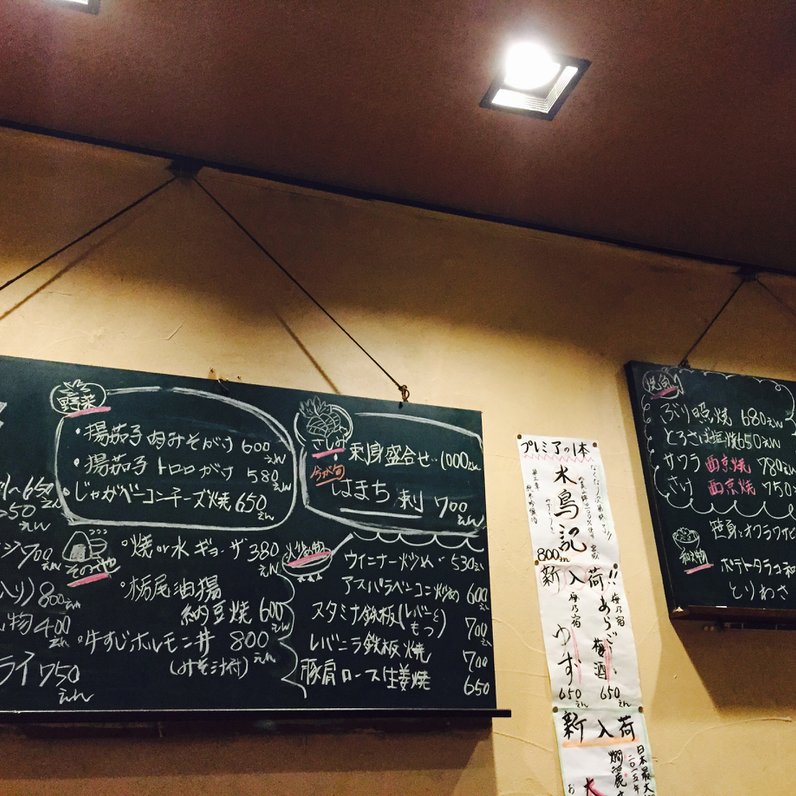 野菜
・揚茄子肉みそがけ 600えん
・揚茄子トロロがけ 580えん
・じゃがベーコンチーズ焼 650えん
さしみ
刺身盛合せ‥1000えん
今が旬
はまち刺 700えん
650
650えん
700えん
入り) 800えん
物 400えん
ライ 750えん
その他
・焼or水ギョーザ 380えん
・栃尾油揚
納豆焼 600えん
・牛すじホルモン丼 800えん
(みそ汁付)
炒め物
ウインナー炒め‥530えん
アスパラベーコン炒め 600えん
スタミナ鉄板(レバーともつ) 700えん
レバニラ鉄板焼 700
豚肩ロース生姜焼 650
プレミアの1本
水鳥記
800m
新入荷!!
梅乃宿
あらごし梅酒
650えん
梅乃宿
ゆず
650えん
新入荷
日本最大
二〇一五年
燗酒
焼魚
ぶり照焼 680えん
とろさば塩焼 650えん
サワラ西京焼 780えん
さけ西京焼 750
ポテトタラコ和
とりわさ